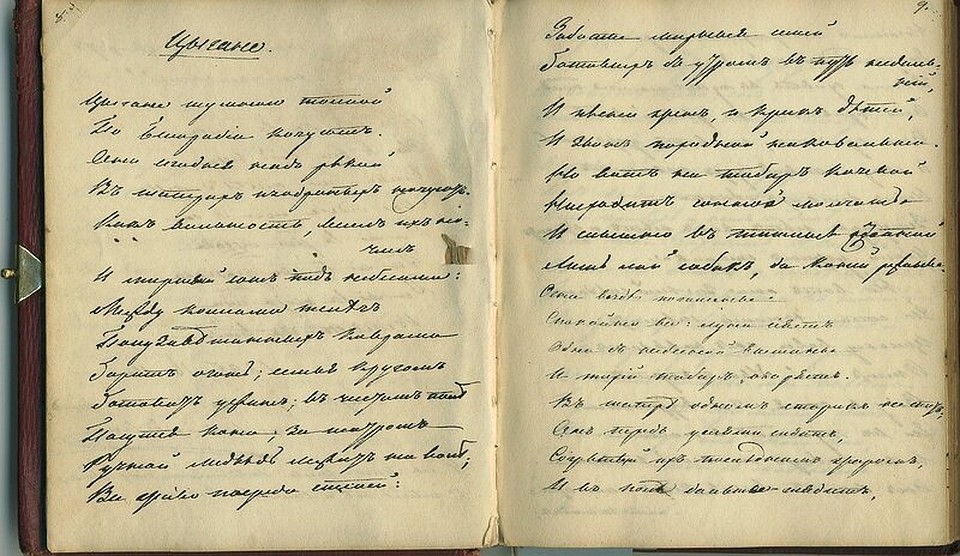 Цыгане.
Цыгане шумною толпой
По Бесарабіи кочуютъ.
Они сегодня надъ рѣкой
Въ шатрахъ изодранныхъ ночуютъ.
Какъ вольность, веселъ ихъ но-
члегъ
И мирный сонъ подъ небесами:
Между колесами телѣгъ
Полузавѣшанныхъ коврами
Горитъ огонь; семья кругомъ
Готовитъ ужинъ; въ чистомъ полѣ
Пасутся кони; за шатромъ
Ручной медвѣдь лежитъ на волѣ;
Все живо посреди степей:
9.
Заботы мирныя семей
Готовыхъ съ утромъ въ путь недаль-
ній,
И пѣсни женъ, и крикъ дѣтей,
И звонъ походной наковальни.
Но вотъ на таборъ кочевой
Нисходитъ сонное молчанье
И слышно въ тишинѣ степной
Лишь лай собакъ, да коней ржанье.
Огни вездѣ погашены.
Спокойно все: луна сіяетъ
Одна съ небесной вышины
И тихій таборъ озаряетъ.
Въ шатрѣ одномъ старикъ не спитъ;
Онъ передъ углями сидитъ,
Согрѣтый ихъ послѣднимъ жаромъ,
И въ поле дальнее глядитъ,